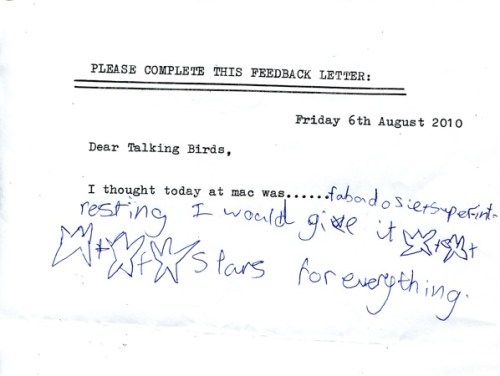 PLEASE COMPLETE THIS FEEDBACK LETTER:
Friday 6th August 2010
Dear Talking Birds,
I thought today at mac was......fabadosie+superint-
resting I would give it ☆+☆+
☆+☆+☆ stars for everything.